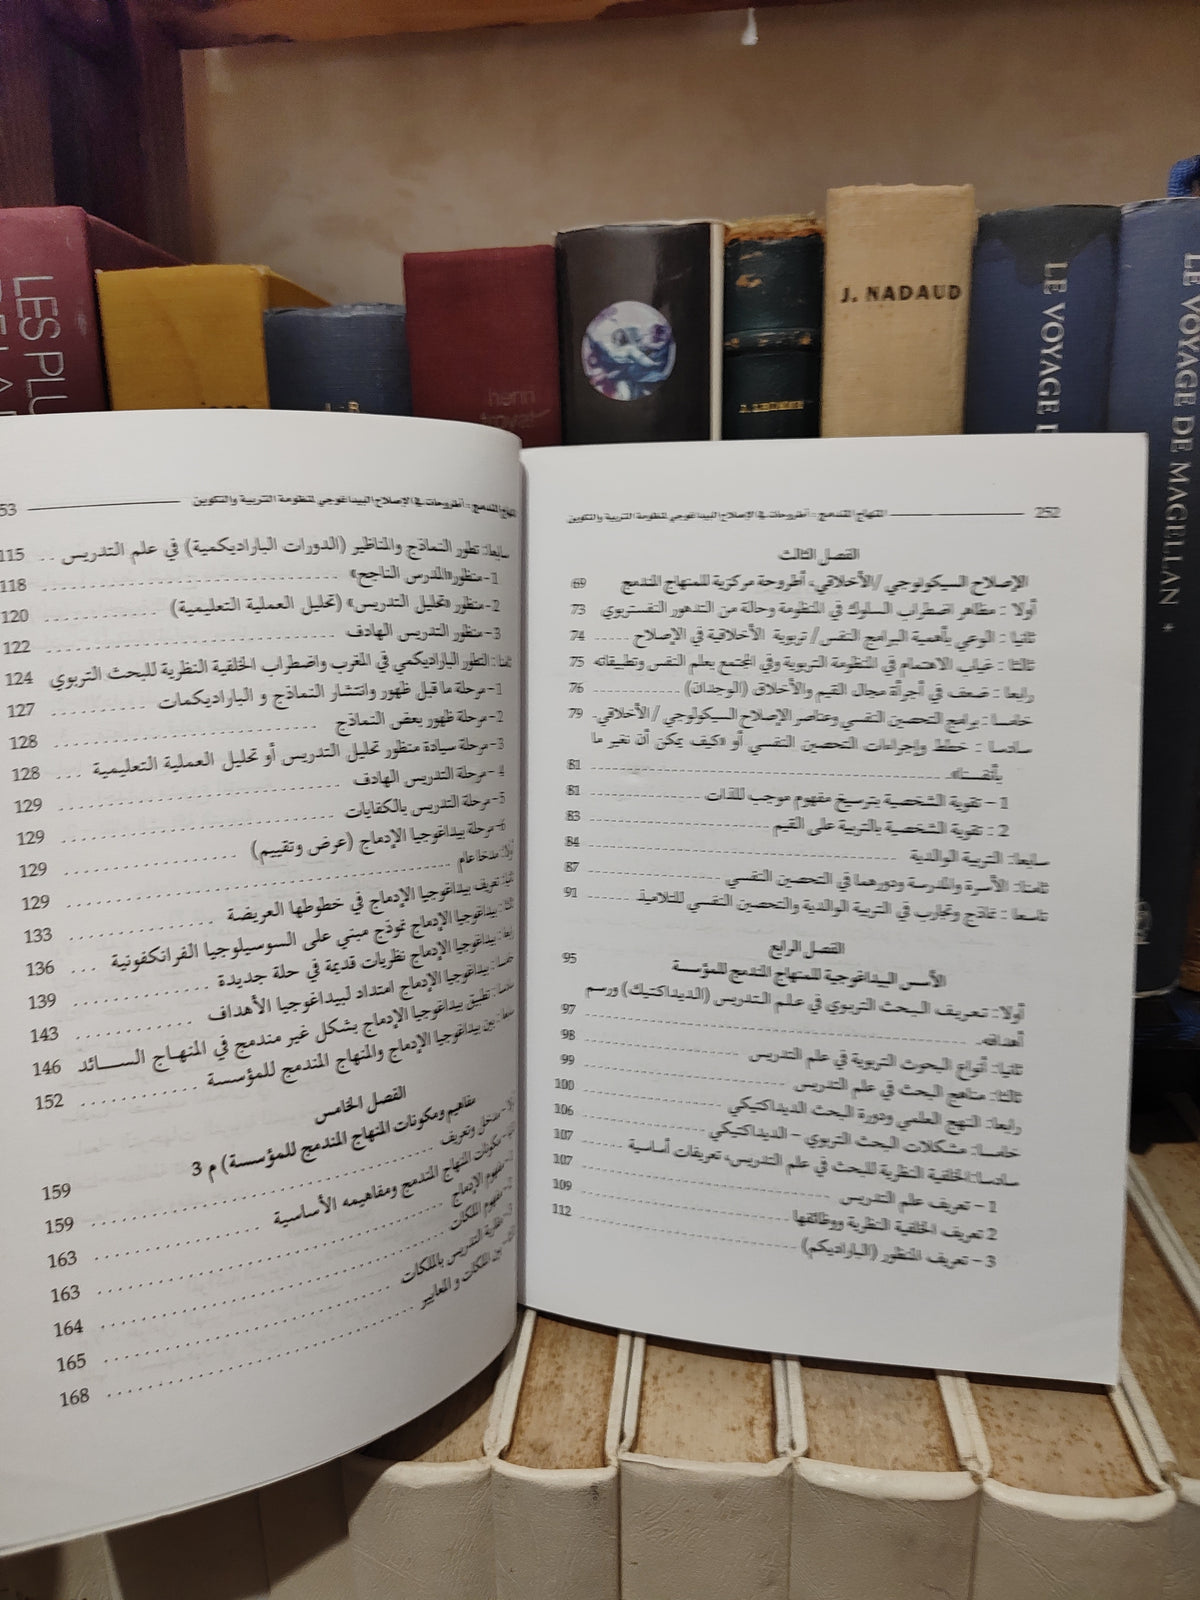 LES PLU
J. NADAUD
LE VOYAGE D
LE VOYAGE DE MAGELLAN
henri
troyat
252 المنهاج المندمج : أطروحات في الإصلاح البيداغوجي لمنظومة التربية والتكوين
الفصل الثالث
الإصلاح السيكولوجي /الأخلاقي، أطروحة مركزية للمنهاج المندمج 69
أولا : مظاهر اضطراب السلوك في المنظومة وحالة من التدهور النفستربوي 73
ثانيا : الوعي بأهمية البرامج النفس/ تربوية الأخلاقية في الإصلاح ...... 74
ثالثا : غياب الاهتمام في المنظومة التربوية وفي المجتمع بعلم النفس وتطبيقاته 75
رابعا : ضعف في أجرأة مجال القيم والأخلاق (الوجدان) ............ 76
خامسا : برامج التحصين النفسي وعناصر الإصلاح السيكولوجي / الأخلاقي. 79
سادسا : خطط وإجراءات التحصين النفسي أو «كيف يمكن أن نغير ما
بأنفسنا». ............ 81
1 – تقوية الشخصية بترسيخ مفهوم موجب للذات ............ 81
2 : تقوية الشخصية بالتربية على القيم ............ 83
سابعا: التربية الوالدية ............ 84
ثامنا: الأسرة والمدرسة ودورهما في التحصين النفسي ............ 87
تاسعا : نماذج وتجارب في التربية الوالدية والتحصين النفسي للتلاميذ ...... 91
الفصل الرابع
الأسس البيداغوجية للمنهاج المندمج للمؤسسة 95
أولا: تعريف البحث التربوي في علم التدريس (الديداكتيك) ورسم
أهدافه. ............ 97
ثانيا: أنواع البحوث التربوية في علم التدريس ............ 98
ثالثا: مناهج البحث في علم التدريس ............ 99
رابعا: النهج العلمي ودورة البحث الديداكتيكي ............ 100
خامسا: مشكلات البحث التربوي – الديداكتيكي ............ 106
سادسا: الخلفية النظرية للبحث في علم التدريس، تعريفات أساسية ...... 107
1 – تعريف علم التدريس ............ 107
2 تعريف الخلفية النظرية ووظائفها ............ 109
3 – تعريف المنظور (الباراديكم) ............ 112
المنهاج المندمج : أطروحات في الإصلاح البيداغوجي لمنظومة التربية والتكوين 53
سابعا: تطور النماذج والمناظير (الدورات الباراديكمية) في علم التدريس .. 115
1- منظور «المدرس الناجح» ............ 118
2- منظور «تحليل التدريس» (تحليل العملية التعليمية) ............ 120
3- منظور التدريس الهادف ............ 122
ثامنا : التطور الباراديكمي في المغرب واضطراب الخلفية النظرية للبحث التربوي 124
1- مرحلة ما قبل ظهور وانتشار النماذج و الباراديكمات ............ 127
2- مرحلة ظهور بعض النماذج ............ 128
3- مرحلة سيادة منظور تحليل التدريس أو تحليل العملية التعليمية ... 128
4- مرحلة التدريس الهادف ............ 129
5- مرحلة التدريس بالكفايات ............ 129
6- مرحلة بيداغوجيا الإدماج (عرض وتقييم) ............ 129
أولا: مدخل عام ............ 129
ثانيا: تعريف بيداغوجيا الإدماج في خطوطها العريضة ............ 133
ثالثا: بيداغوجيا الإدماج نموذج مبني على السوسيلوجيا الفرانكفونية ... 136
رابعا: بيداغوجيا الإدماج نظريات قديمة في حلة جديدة ............ 139
خامسا: بيداغوجيا الإدماج امتداد لبيداغوجيا الأهداف ............ 143
سادسا: تطبيق بيداغوجيا الإدماج بشكل غير مندمج في المنهاج السائد 146
سابعا: بين بيداغوجيا الإدماج والمنهاج المندمج للمؤسسة ............ 152
الفصل الخامس
مفاهيم ومكونات المنهاج المندمج للمؤسسة) م 3 159
أولا- مدخل وتعريف ............ 159
مكونات المنهاج المندمج ومفاهيمه الأساسية ............ 163
1- مفهوم الإدماج ............ 163
2- مفهوم الملكات ............ 164
3- نظرية التدريس بالملكات ............ 165
بين الملكات و المعايير ............ 168